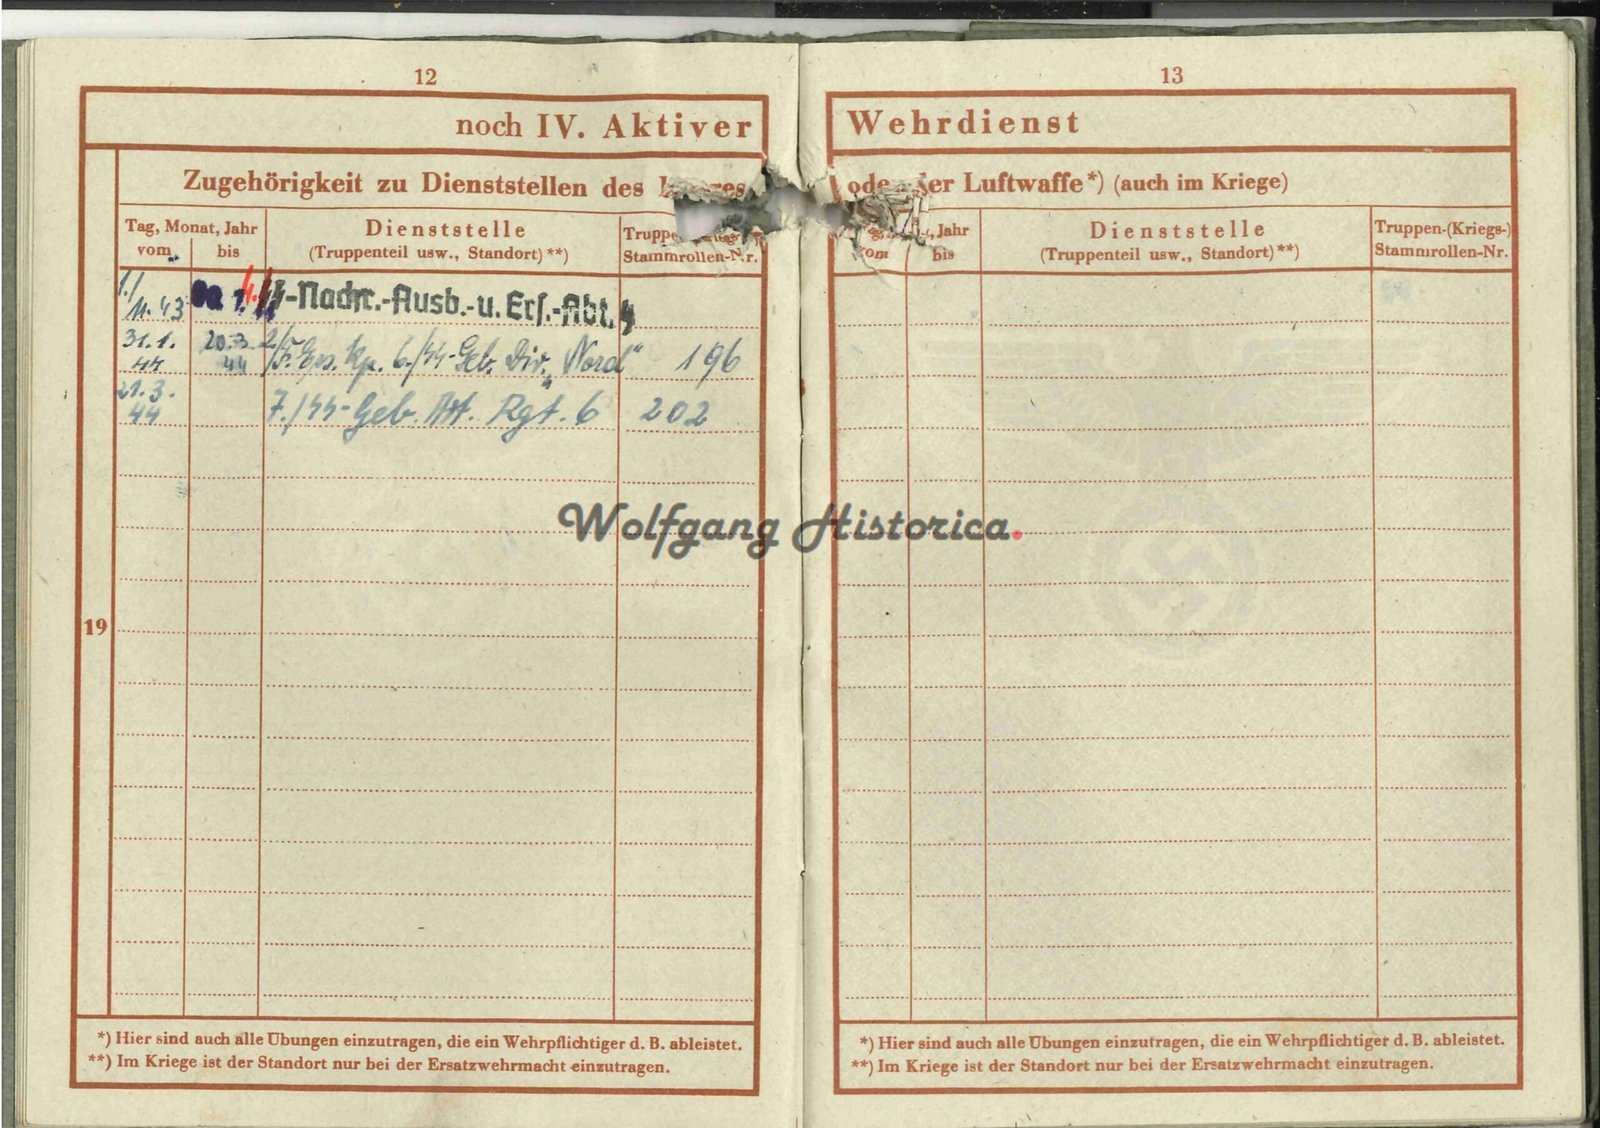 12
noch IV. Aktiver
Zugehörigkeit zu Dienststellen des
Tag, Monat, Jahr
vom bis
Dienststelle
(Truppenteil usw., Standort)**)
Stammrollen-Nr.
1./
11.43
SS-Nachr.-Ausb.-u. Ers.-Abt. 4
31.1. 20.3.
44 44
Kp. 6./SS-Geb. Div. „Nord“ 196
21.3.
44
7./SS-Geb. Rgt. 6 202
19
*) Hier sind auch alle Übungen einzutragen, die ein Wehrpflichtiger d. B. ableistet.
**) Im Kriege ist der Standort nur bei der Ersatzwehrmacht einzutragen.
13
Wehrdienst
der Luftwaffe*) (auch im Kriege)
Jahr
bis
Dienststelle
(Truppenteil usw., Standort)**)
Truppen-(Kriegs-)
Stammrollen-Nr.
*) Hier sind auch alle Übungen einzutragen, die ein Wehrpflichtiger d. B. ableistet.
**) Im Kriege ist der Standort nur bei der Ersatzwehrmacht einzutragen.
Wolfgang Historica.